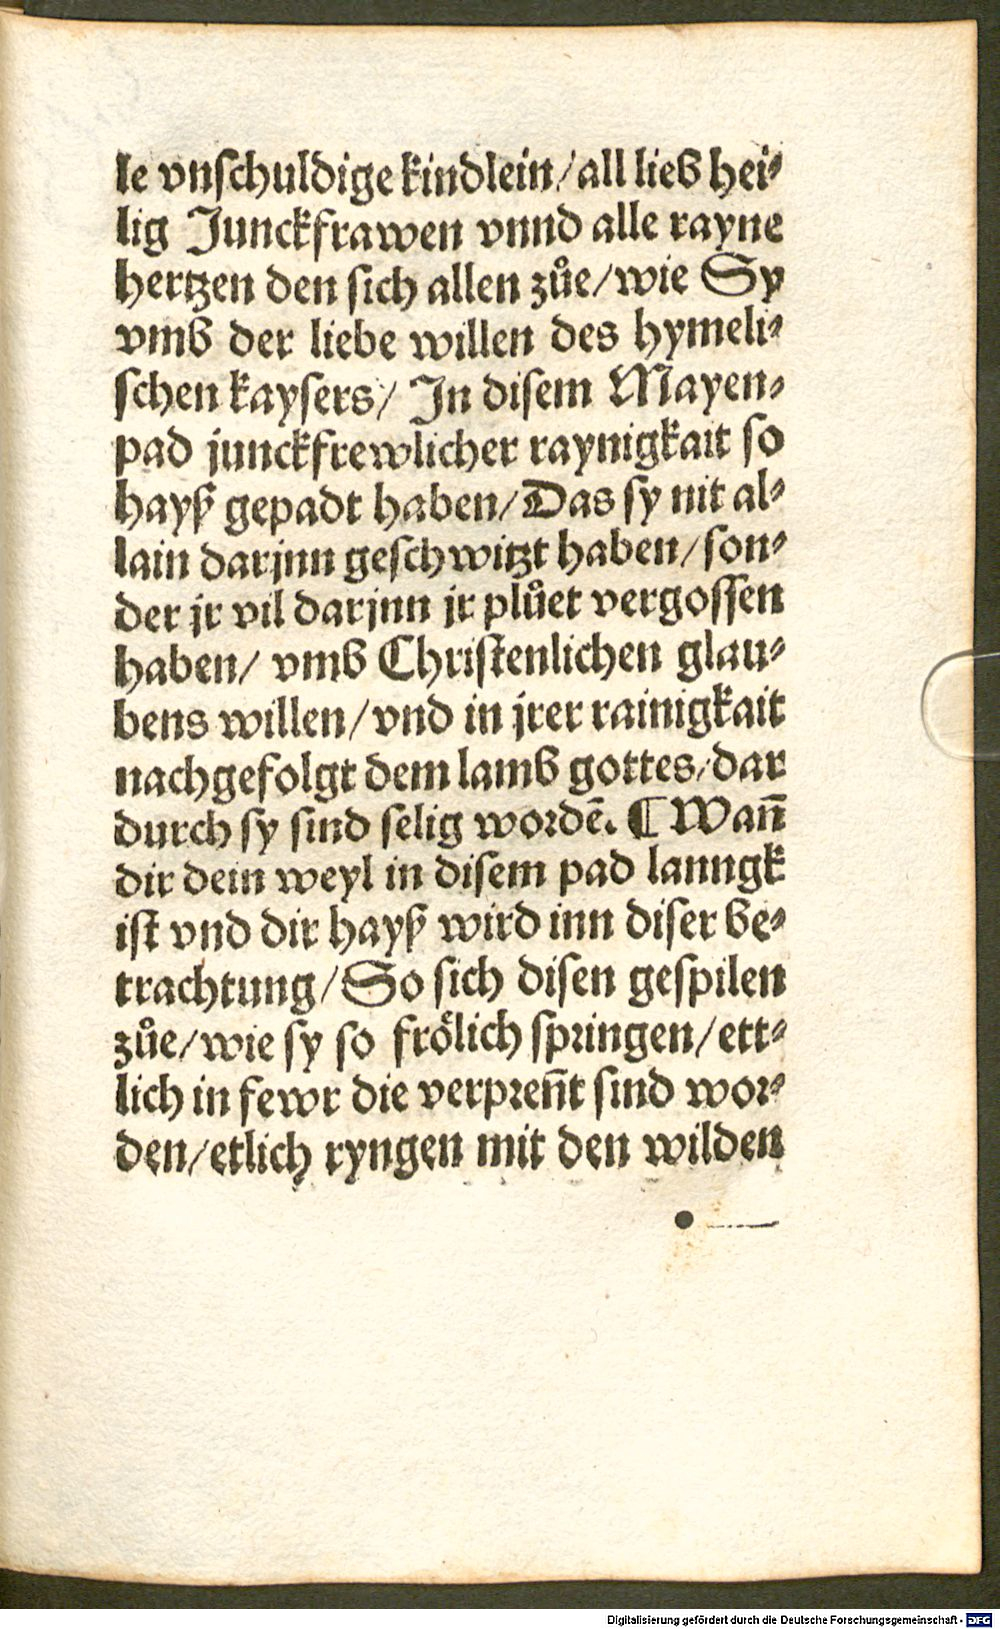 le vnſchuldige kindlein/ all lieb hei⸗
lig Junckfrawen vnnd alle rayne
hertzen den ſich allen zůe/ wie Sy
vmb der liebe willen des hymeli⸗
ſchen kayſers/ In diſem Mayen⸗
pad junckfrewlicher raynigkait ſo
hayß gepadt haben/ Das ſy nit al⸗
lain darjnn geſchwitzt haben/ ſon⸗
der jr vil darjnn jr plůet vergoſſen
haben/ vmb Chriſtenlichen glau⸗
bens willen/ vnd in jrer rainigkait
nachgefolgt dem lamb gottes/ dar
durch ſy ſind ſelig wordē. ¶ Wan̄
dir dein weyl in diſem pad lanngk
iſt vnd dir hayß wird inn diſer be⸗
trachtung/ So ſich diſen geſpilen
zůe/ wie ſy ſo frölich ſpringen/ ett⸗
lich in fewr die verpren̄t ſind wor⸗
den/ etlich ryngen mit den wilden
Digitalisierung gefördert durch die Deutsche Forschungsgemeinschaft - DFG